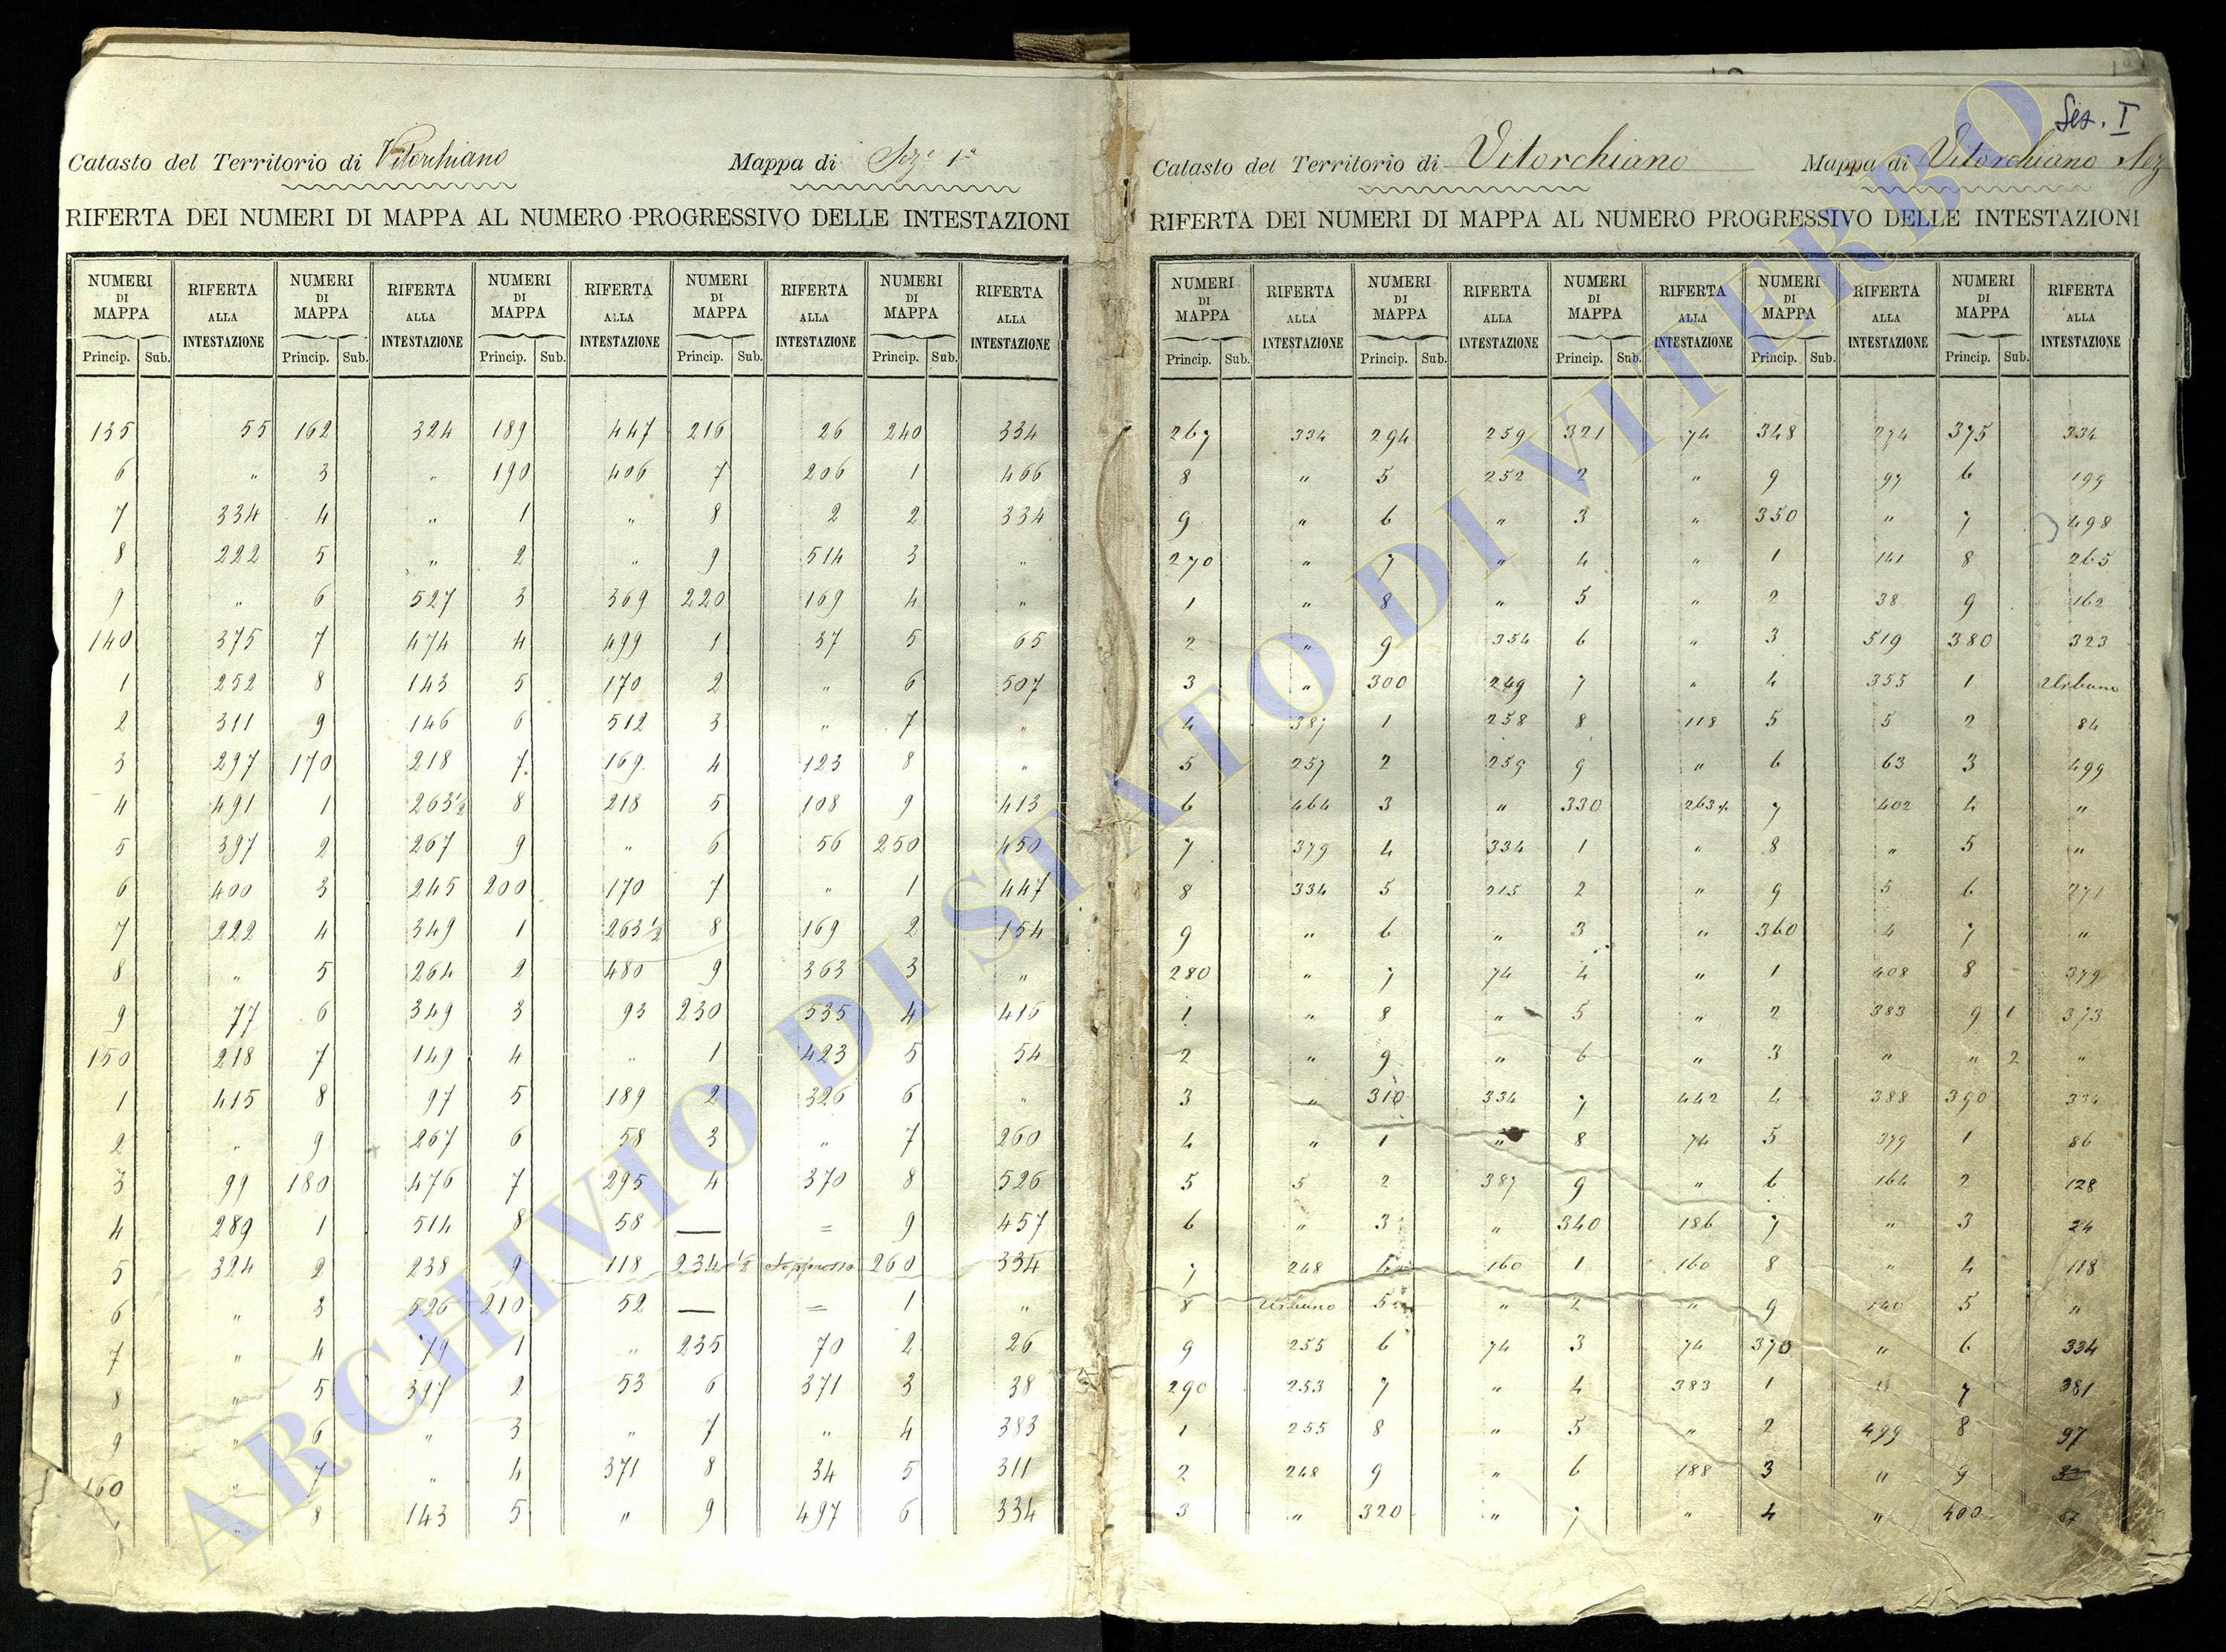 Sez. I
Catasto del Territorio di Vitorchiano Mappa di Sez.e 1a
RIFERTA DEI NUMERI DI MAPPA AL NUMERO PROGRESSIVO DELLE INTESTAZIONI
NUMERI DI MAPPA RIFERTA ALLA INTESTAZIONE NUMERI DI MAPPA RIFERTA ALLA INTESTAZIONE NUMERI DI MAPPA RIFERTA ALLA INTESTAZIONE NUMERI DI MAPPA RIFERTA ALLA INTESTAZIONE NUMERI DI MAPPA RIFERTA ALLA INTESTAZIONE
Princip. Sub. Princip. Sub. Princip. Sub. Princip. Sub. Princip. Sub.
135 55 162 324 189 447 216 26 240 334
6 " 3 " 190 406 7 206 1 466
7 334 4 " 1 " 8 2 2 334
8 222 5 " 2 " 9 514 3 "
9 " 6 527 3 369 220 169 4 "
140 375 7 474 4 499 1 37 5 65
1 252 8 143 5 170 2 " 6 507
2 311 9 146 6 512 3 " 7 "
3 297 170 218 7 169 4 123 8 "
4 491 1 263½ 8 218 5 108 9 413
5 397 2 267 9 " 6 56 250 450
6 400 3 245 200 170 7 " 1 447
7 222 4 349 1 263½ 8 169 2 154
8 " 5 264 2 480 9 363 3 "
9 77 6 349 3 93 230 535 4 416
150 218 7 149 4 " 1 423 5 54
1 415 8 97 5 189 2 326 6 "
2 " 9 267 6 58 3 " 7 260
3 99 180 476 7 295 4 370 8 526
4 289 1 514 8 58 — = 9 457
5 324 2 238 9 118 234 ½ soppresso 260 334
6 " 3 526 210 52 — = 1 "
7 " 4 79 1 " 235 70 2 26
8 " 5 397 2 53 6 371 3 38
9 " 6 " 3 " 7 " 4 383
160 " 7 " 4 371 8 34 5 311
" 8 143 5 " 9 497 6 334
Catasto del Territorio di Vitorchiano Mappa di Vitorchiano Sez
RIFERTA DEI NUMERI DI MAPPA AL NUMERO PROGRESSIVO DELLE INTESTAZIONI
NUMERI DI MAPPA RIFERTA ALLA INTESTAZIONE NUMERI DI MAPPA RIFERTA ALLA INTESTAZIONE NUMERI DI MAPPA RIFERTA ALLA INTESTAZIONE NUMERI DI MAPPA RIFERTA ALLA INTESTAZIONE NUMERI DI MAPPA RIFERTA ALLA INTESTAZIONE
Princip. Sub. Princip. Sub. Princip. Sub. Princip. Sub. Princip. Sub.
267 334 294 259 321 74 348 274 375 334
8 " 5 252 2 " 9 97 6 199
9 " 6 " 3 " 350 " 7 498
270 " 7 " 4 " 1 141 8 265
1 " 8 " 5 " 2 38 9 162
2 " 9 354 6 " 3 519 380 323
3 " 300 249 7 " 4 355 1 Urbano
4 387 1 258 8 118 5 5 2 84
5 257 2 259 9 " 6 63 3 499
6 464 3 " 330 263½ 7 402 4 "
7 379 4 334 1 " 8 " 5 "
8 334 5 215 2 " 9 5 6 271
9 " 6 " 3 " 360 4 7 "
280 " 7 74 4 " 1 408 8 379
1 " 8 " 5 " 2 383 9 1 373
2 " 9 " 6 " 3 " " 2 "
3 " 310 334 7 442 4 388 390 334
4 " 1 " 8 74 5 379 1 86
5 5 2 387 9 " 6 164 2 128
6 " 3 " 340 186 7 " 3 24
7 248 4 160 1 160 8 " 4 118
8 Urbano 5 " 2 " 9 140 5 "
9 255 6 74 3 74 370 " 6 334
290 253 7 " 4 383 1 " 7 381
1 255 8 " 5 " 2 499 8 97
2 248 9 " 6 188 3 " 9
3 " 320 " 7 " 4 " 400 87
ARCHIVIO DI STATO DI VITERBO